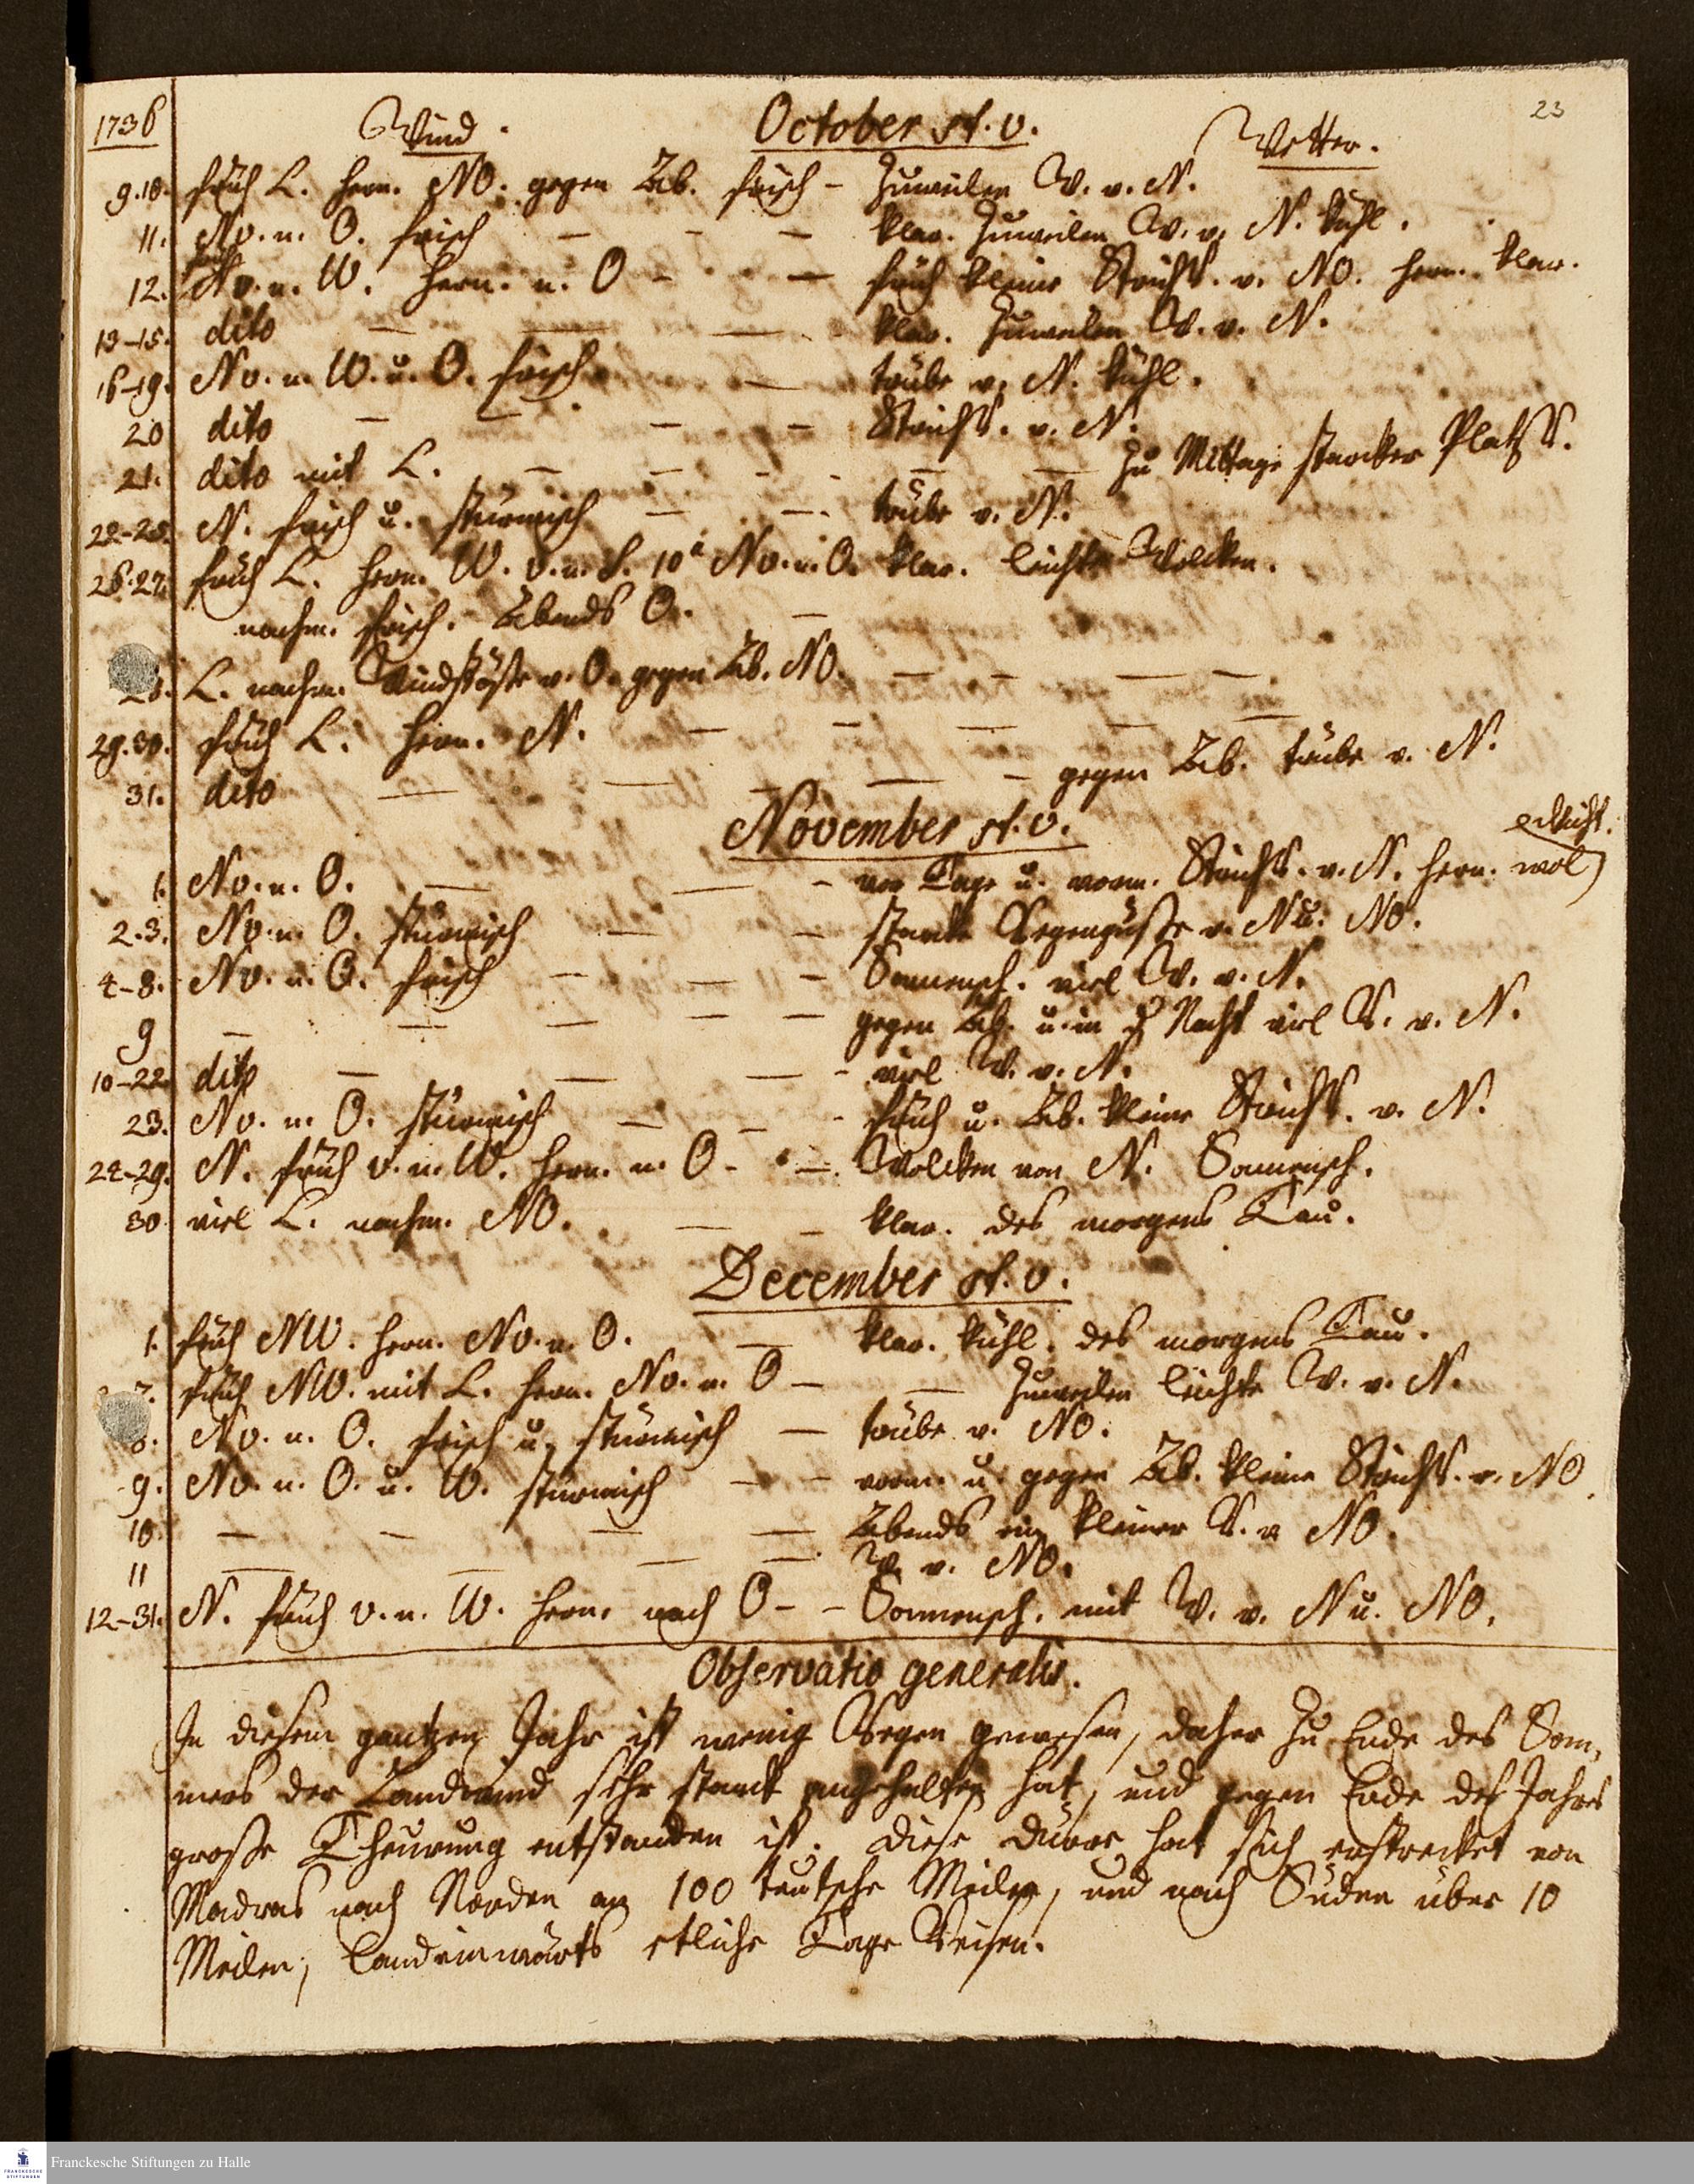 23
1736 Wind. October st. v. Wetter.
9.10. früh L. hern. NO. gegen Ab. frisch - zuweilen W. v. N.
11. N v. u. O. frisch — - — klar. zuweilen W. v. N. kühl.
12. N v. u. W. hern. u. O - — früh kleine Strichr. v. NO. hern. klar.
13-15. dito — — — klar. zuweilen W. v. N.
16-19. N v. u. W. u. O. frisch — trübe v. N. kühl.
20 dito — — — - Strichr. v. N.
21. dito mit L. — — - - — — zu Mittage starcker Platzr.
22-25. N. frisch u. stürmisch — — trübe v. N.
26.27. früh L. hern. W. v. u. S. 10 a N v. u. O. klar. leichte Wolcken.
nachm. frisch. Abends O. —
28. L. nachm. Windstöße v. O. gegen Ab. NO. — - — —
29.30. früh L. hern. N. — - — — —
31. dito — — - — - gegen Ab. trübe v. N.
November st. v.
1. N v. u. O. — — - vor Tage u. vorm. Strichr. v. N. hern. wol
2.3. N v. u. O. stürmisch — - starcke Regengüsse v. N u. NO.
4-8. N v. u. O. frisch — — - Sonnensch. viel W. v. N.
9 - — — — — gegen Ab. u. in der Nacht viel R. v. N.
10-22. dito — — — - viel W. v. N.
23. N v. u. O. stürmisch — - - früh u. Ab. kleine Strichr. v. N.
24-29. N. früh v. u. W. hern. u. O - —. Wolcken von N. Sonnensch.
30 viel L. nachm. NO. — - klar. des morgens Tau.
December st. v.
1. früh NW. hern. N v. u. O. — klar. kühl. des morgens Tau.
7. früh NW. mit L. hern. N v. u. O — — zuweilen leichte W. v. N.
8. N v. u. O. frisch u. stürmisch — trübe v. NO.
9. N v. u. O. u. W. stürmisch — - vorm. u. gegen Ab. kleine Strichr. v. NO.
10. — - — — Abends ein kleiner R. v NO.
11 — — — —. W. v. NO.
12-31. N. früh v. u. W. hern. nach O - - Sonnensch. mit W. v. N u. NO.
Observatio generalis.
In diesem gantzen Jahr ist wenig Regen gewesen, daher zu Ende des Som-
mers der Landwind sehr starck angehalten hat, und gegen Ende des Jahres
große Theurung entstanden ist. Diese Dürre hat sich erstrecket von
Madras nach Norden an 100 teutsche Meilen, und nach Süden über 10
Meilen; landeinwärts etliche Tage Reisen.
Franckesche Stiftungen zu Halle
FRANCKESCHE
STIFTUNGEN